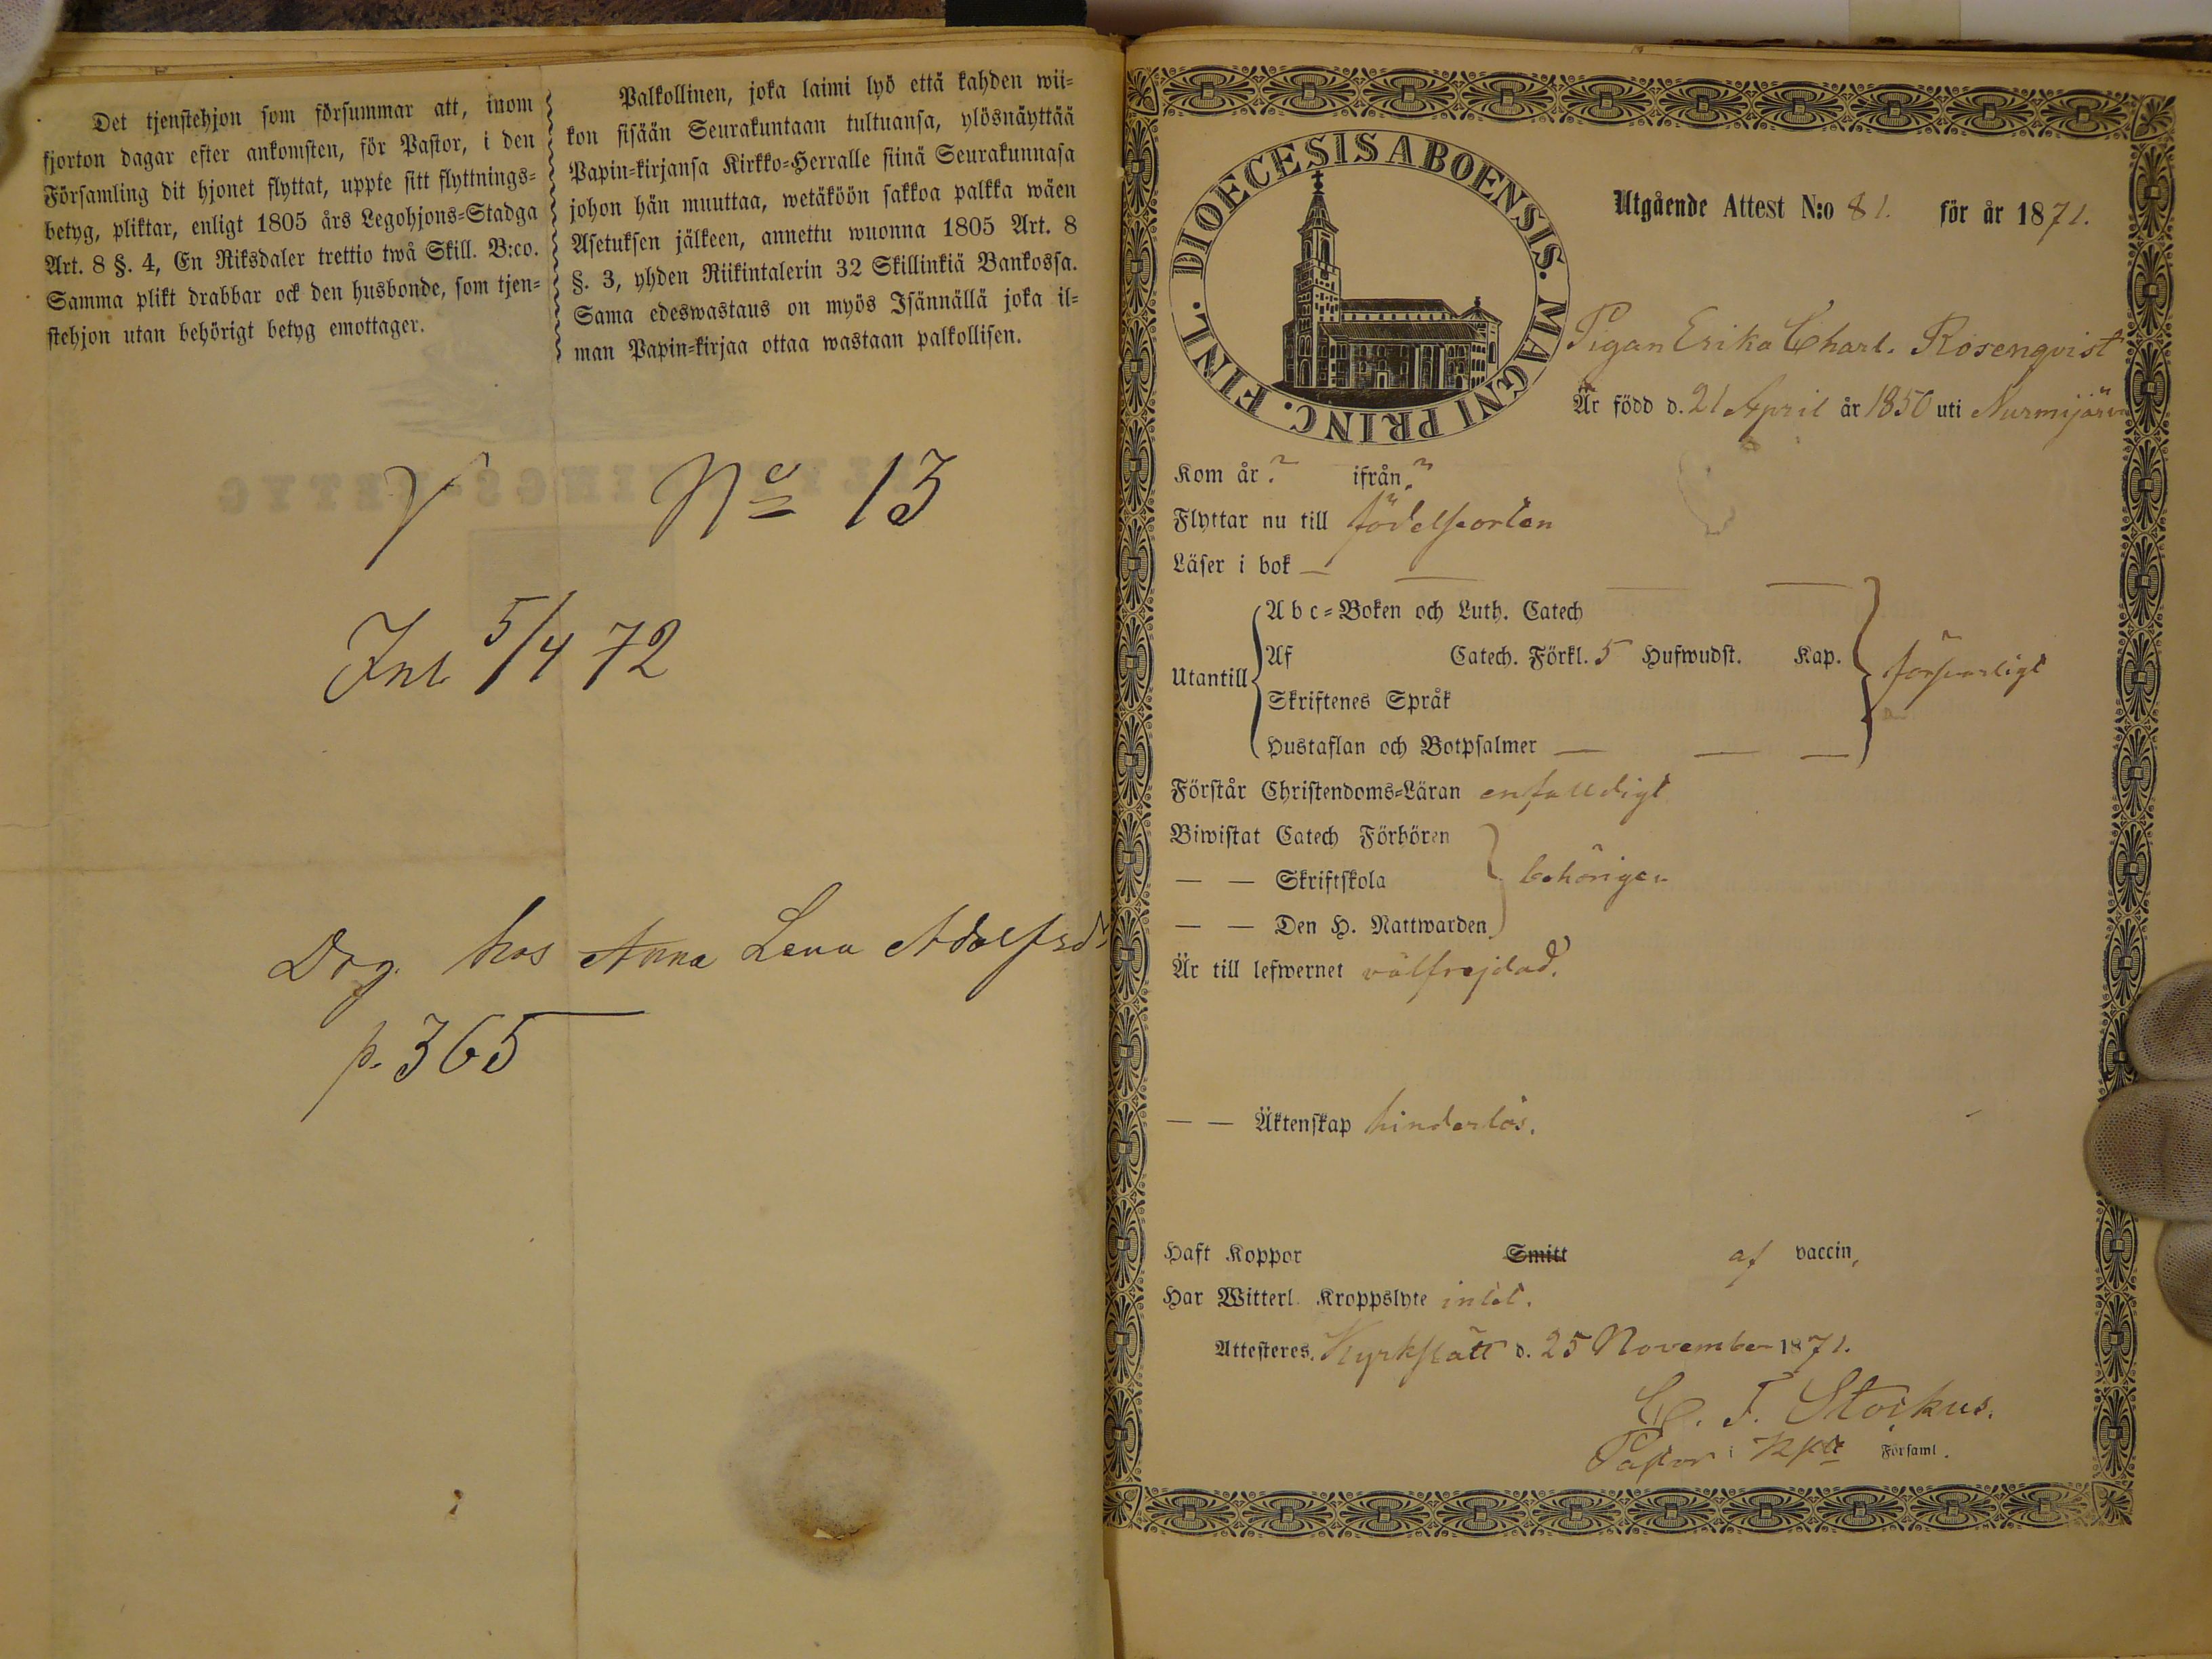 Det tjenstehjon som försummar att, inom
fjorton dagar efter ankomsten, för Pastor, i den
Församling dit hjonet flyttat, uppte sitt flyttnings-
betyg, pliktar, enligt 1805 års Legohjons-Stadga
Art. 8 §. 4, En Riksdaler trettio twå Skill. B:co.
Samma plikt drabbar ock den husbonde, som tjen-
stehjon utan behörigt betyg emottager.
Palkollinen, joka laimi lyö että kahden wii-
kon sisään Seurakuntaan tultuansa, ylösnäyttää
Papin-kirjansa Kirkko-Herralle siinä Seurakunnasa
johon hän muuttaa, wetäköön sakkoa palkka wäen
Asetuksen jälkeen, annettu wuonna 1805 Art. 8
§. 3, yhden Riikintalerin 32 Skillinkiä Bankossa.
Sama edeswastaus on myös Isännällä joka il-
man Papin-kirjaa ottaa wastaan palkollisen.
No 13
Inl 5/4 72
Drg. hos Anna Lena Adolfsd
p. 365
DIOECESIS ABOENSIS. MAGNI PRINC. FINL.
Utgående Attest N:o 81. för år 1871.
Pigan Erika Charl. Rosenqvist
Är född d. 21 April år 1850 uti Nurmijärvi
Kom år ? ifrån ?
Flyttar nu till födelseorten
Läser i bok — — — —
Abc-Boken och Luth. Catech
Utantill Af Catech. Förkl. 5 Hufwudst. Kap. försvarligt
Skriftenes Språk
Hustaflan och Botpsalmer — — —
Förstår Christendoms-Läran enfalldigt
Biwistat Catech Förhören
— — Skriftskola behörigen
— — Den H. Nattwarden
Är till lefwernet välfrejdad.
— — Äktenskap hinderlös.
Haft Koppor Smitt af vaccin,
Har Witterl. Kroppslyte intet.
Attesteres. Kyrkslätt d. 25 November 1871.
F. Stockus.
Pastor i Kslt Församl.